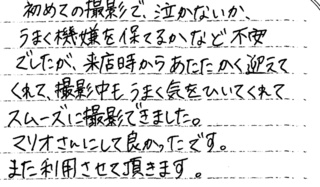 初めての撮影で、泣かないか、
うまく機嫌を保てるかなど不安
でしたが、来店時からあたたかく迎えて
くれて、撮影中もうまく気をひいてくれて
スムーズに撮影できました。
マリオさんにして良かったです。
また利用させて頂きます。